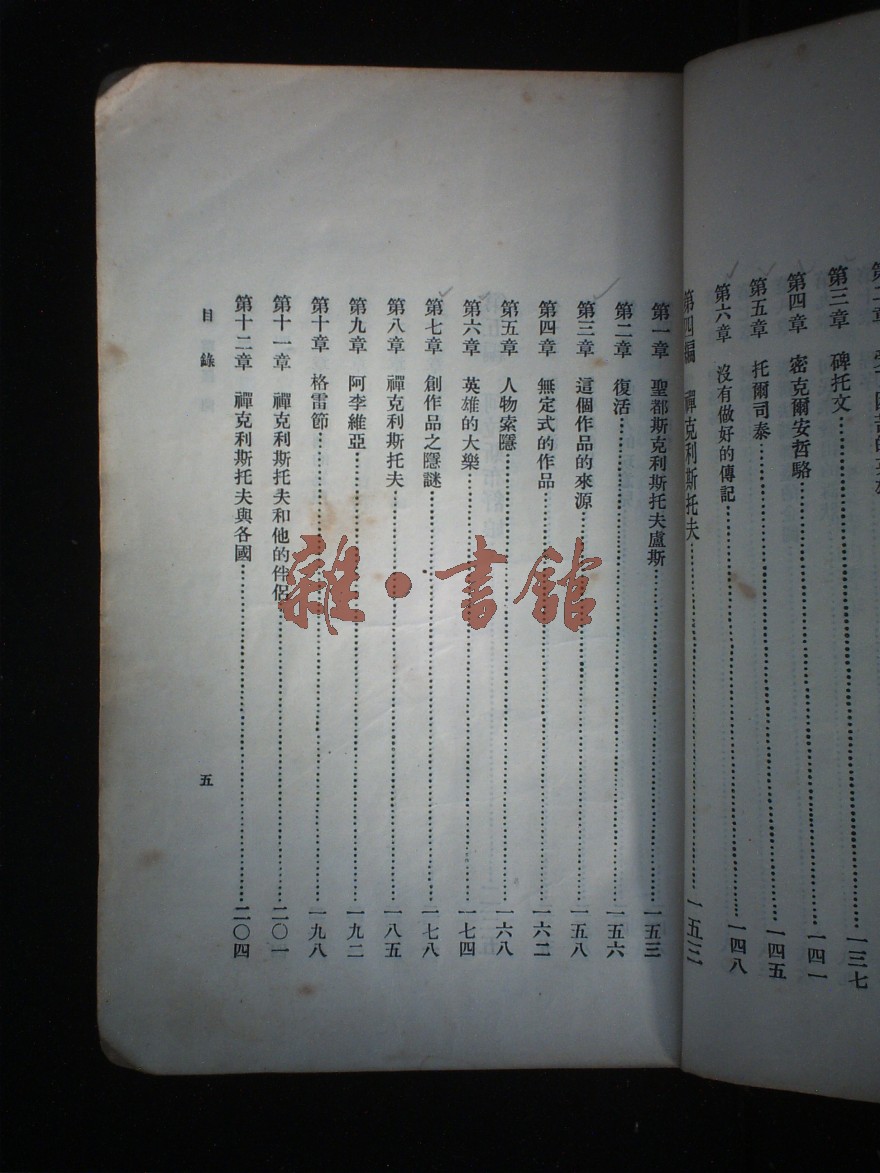 第三章　碑托文……一三七
第四章　密克爾安哲駱……一四一
第五章　托爾司泰……一四五
第六章　沒有做好的傳記……一四八
第四編　禪克利斯托夫……一五三
第一章　聖都斯克利斯托夫盧斯……一五三
第二章　復活……一五六
第三章　這個作品的來源……一五八
第四章　無定式的作品……一六二
第五章　人物索隱……一六八
第六章　英雄的大樂……一七四
第七章　創作品之隱謎……一七八
第八章　禪克利斯托夫……一八五
第九章　阿李維亞……一九二
第十章　格雷節……一九八
第十一章　禪克利斯托夫和他的伴侶……二〇一
第十二章　禪克利斯托夫與各國……二〇四
目錄
五
雜·書館